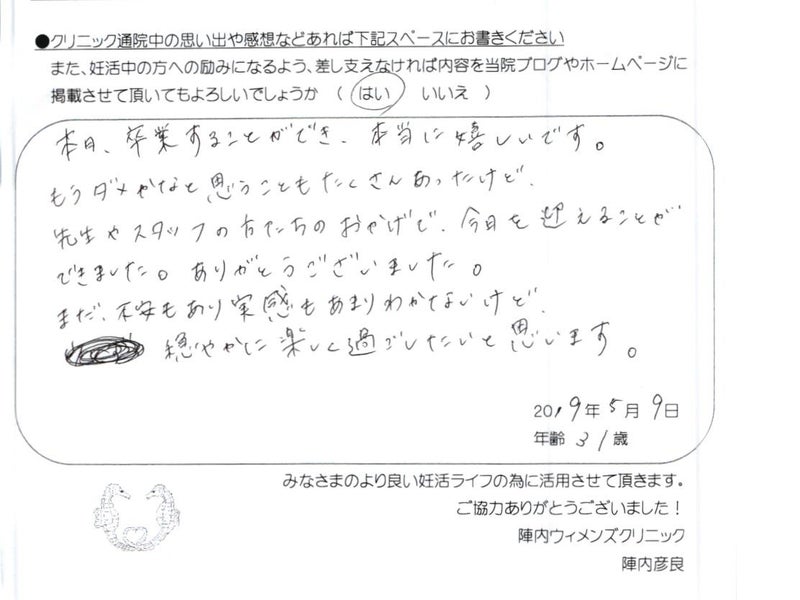 ●クリニック通院中の思い出や感想などあれば下記スペースにお書きください
また、妊活中の方への励みになるよう、差し支えなければ内容を当院ブログやホームページに
掲載させて頂いてもよろしいでしょうか ( はい いいえ )
本日、卒業することができ、本当に嬉しいです。
もうダメかなと思うこともたくさんあったけど、
先生やスタッフの方たちのおかげで、今日を迎えることが
できました。ありがとうございました。
まだ、不安もあり実感もあまりわかないけど、
穏やかに楽しく過ごしたいと思います。
2019年5月9日
年齢31歳
みなさまのより良い妊活ライフの為に活用させて頂きます。
ご協力ありがとうございました!
陣内ウィメンズクリニック
陣内彦良